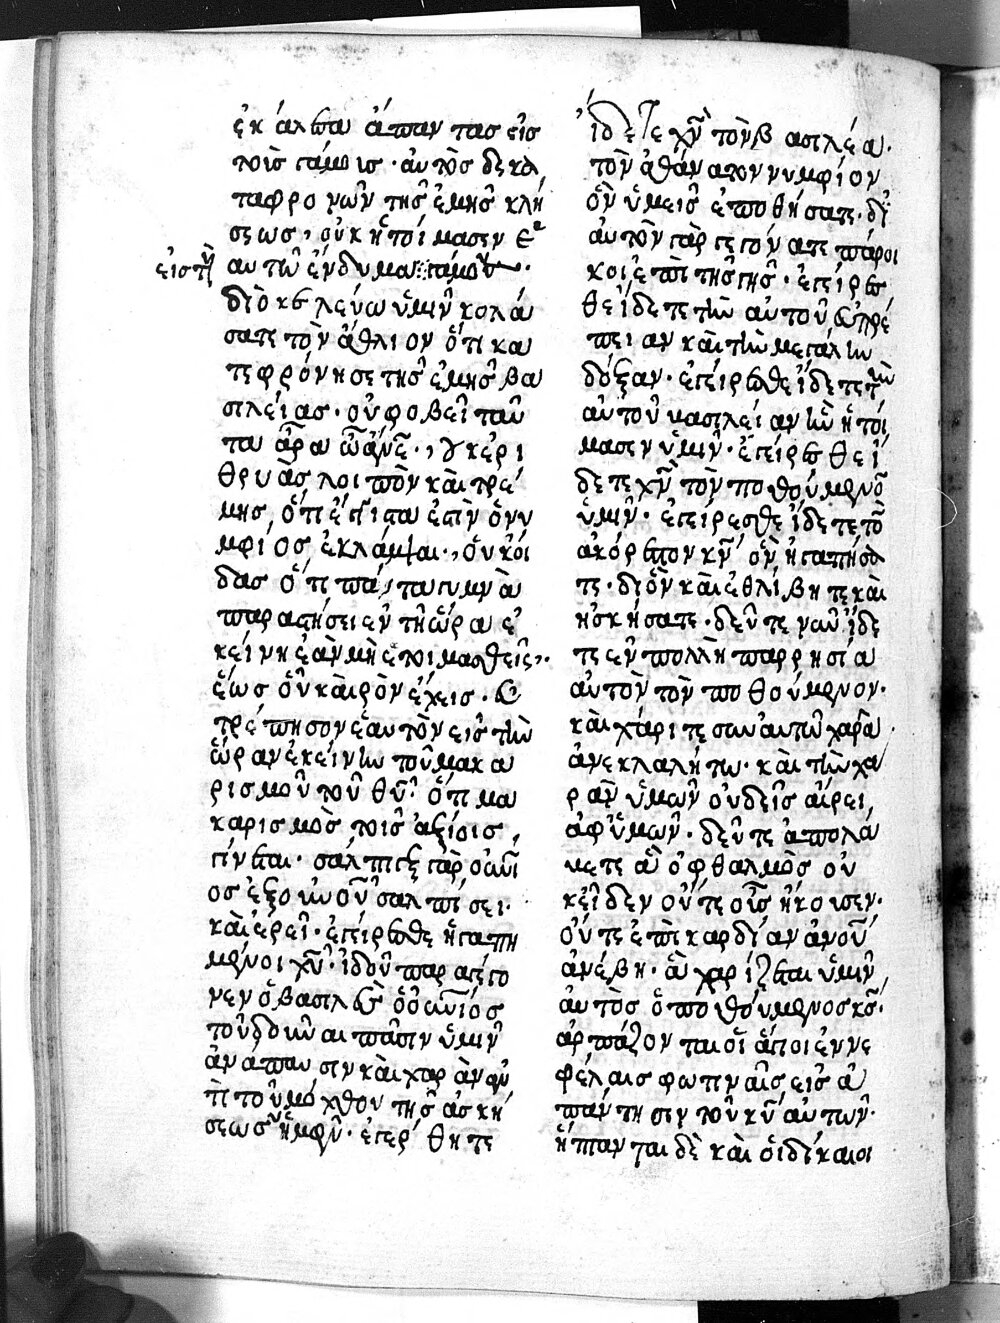 ἐκάλεσα ἅπαντας εἰς
τοὺς γάμους· αὐτὸς δὲ κα
ταφρονῶν τῆς ἐμῆς κλή
σεως, οὐκ ἡτοίμασεν ἑ
εἰς τὴν
αυτῶ ἔνδυμα γάμου·
διὸ κελεύω ὑμῖν κολά
σατε τὸν ἄθλιον ὅτι κα
τεφρόνησε τῆς ἐμῆς βα
σιλείας· οὐ φοβεῖ ταῦ
τα ἆρα ὦ ἄνε·
θρυὰς λοιπὸν καὶ τρέ
μης, ὅτι
μφίος ἐκλάμψαι· οὐκ οἶ
δας ὅτι πάντα γυμνὰ
παραστήσει ἐν τῆ ὥρα ἐ
κείνη ἐὰν μὴ ἑτοιμασθεὶς·
ἕως οὖν καιρὸν ἔχεις· εὐ
τρέπησον ἑαυτὸν εἰς τὴν
ὥραν ἐκείνην τοῦ μακα
ρισμοῦ τοῦ θυ· ὅτι μα
καρισμὸς τοῖς ἀξίοις,
γίνεται· σάλπιγξ γὰρ ὁ υἱ
ος ἐξ οὐνοῦ σαλπίσει·
καὶ ἐρεῖ· ἐγείρεσθε ἠγαπη
μένοι χυ· ἰδοῦ παραγέγο
νεν ὁ βασιλεὺς ὁ οὐνιος
τοῦ δοῦναι πᾶσιν ὑμῖν
ἀνάπαυσιν καὶ χαρὰν ἀν
τὶ τοῦ μόχθου τῆς ἀσκή
σεως ὑμῶν· ἐγέρθητε
ἴδετε χν τὸν βασιλέα·
τὸν ἀθάνατον νυμφίον
ὃν ὑμεῖς ἐποθήσατε· δι
αυτὸν γὰρ γεγόνατε πάροι
κοι ἐπὶ τῆς γῆς· ἐγείρεσ
θε ἴδετε τὴν αὐτοῦ εὐπρέ
πειαν καὶ τὴν μεγάλην
δόξαν· ἐγείρεσθε ἴδετε τὴν
αὐτοῦ βασιλείαν ἣν ἡτοί
μασεν ὑμῖν· ἐγείρεσθε ἴ
δετε χν τὸν ποθούμενον
ὑμῖν· ἐγείρεσθε ἴδετε τὸν
ἀκόρεστον κν ὃν ἠγαπήσα
τε· δι ὃν καὶ ἐθλίβητε καὶ
ἠσκήσατε· δεῦτε νῦν ἴδε
τε ἐν πολλῆ παρρησία
αὐτὸν τὸν ποθούμενον·
καὶ χάριτε σὺν αὐτῶ χαρᾶ
ἀνεκλαλήτω· καὶ τὴν χα
ρὰν ὑμῶν οὐδεὶς αἴρει,
ἀφ ὑμῶν· δεῦτε ἀπολά
βετε ἃ ὀφθαλμὸς οὐ
κ εἶδεν οὔτε οὖς ἤκουσεν·
οὔτε ἐπι καρδίαν ἀνου
ἀνέβη· ἃ χαρίζεται ὑμῖν
αὐτὸς ὁ ποθούμενος κς·
ἁρπάζονται οἱ ἅγιοι ἐν νε
φέλαις φωτιναῖς εἰς ἀ
πάντησιν τοῦ κυ αὐτῶν·
ἥπτανται δὲ καὶ οἱ δίκαιοι